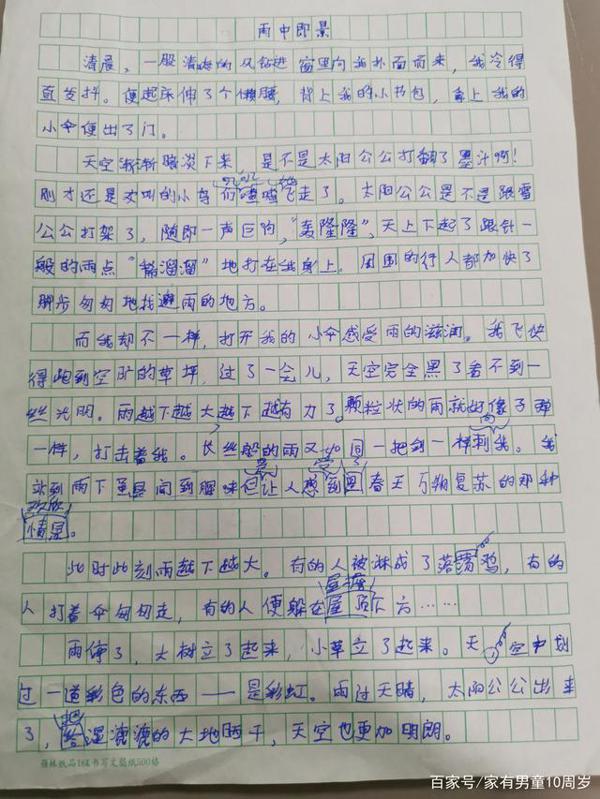 雨中即景
清晨，一股清爽的风钻进窗里向我扑面而来，我冷得
直发抖。便起床伸了个懒腰，背上我的小书包，拿上我的
小伞便出了门。
天空渐渐暗淡下来 是不是太阳公公打翻了墨汁啊！
刚才还是欢叫的小鸟们喳喳飞走了。太阳公公是不是跟雷
公公打架了，随即一声巨响，“轰隆隆”，天上下起了跟针一
般的雨点“ 溜溜”地打在我身上。周围的行人都加快了
脚步匆匆地找避雨的地方。
而我却不一样，打开我的小伞感受雨的滋润。我飞快
得跑到空旷的草坪，过了一会儿，天空完全黑了看不到一
丝光明。雨越下越大越下越有力了。颗粒状的雨就好像子弹
一样，打击着我。长丝般的雨又如同一把剑一样刺我。我
站到雨下 间到 味但让人感到 春天万物复苏的那种
情景。
此时此刻雨越下越大。有的人被淋成了落汤鸡，有的
人打着伞匆匆走，有的人便躲在屋 下方……
雨停了，大树立了起来，小草立了起来。天空中划
过一道彩色的东西——是彩虹。雨过天晴，太阳公公出来
了，把湿漉漉的大地晒干，天空也更加明朗。
百家号/家有男童10周岁